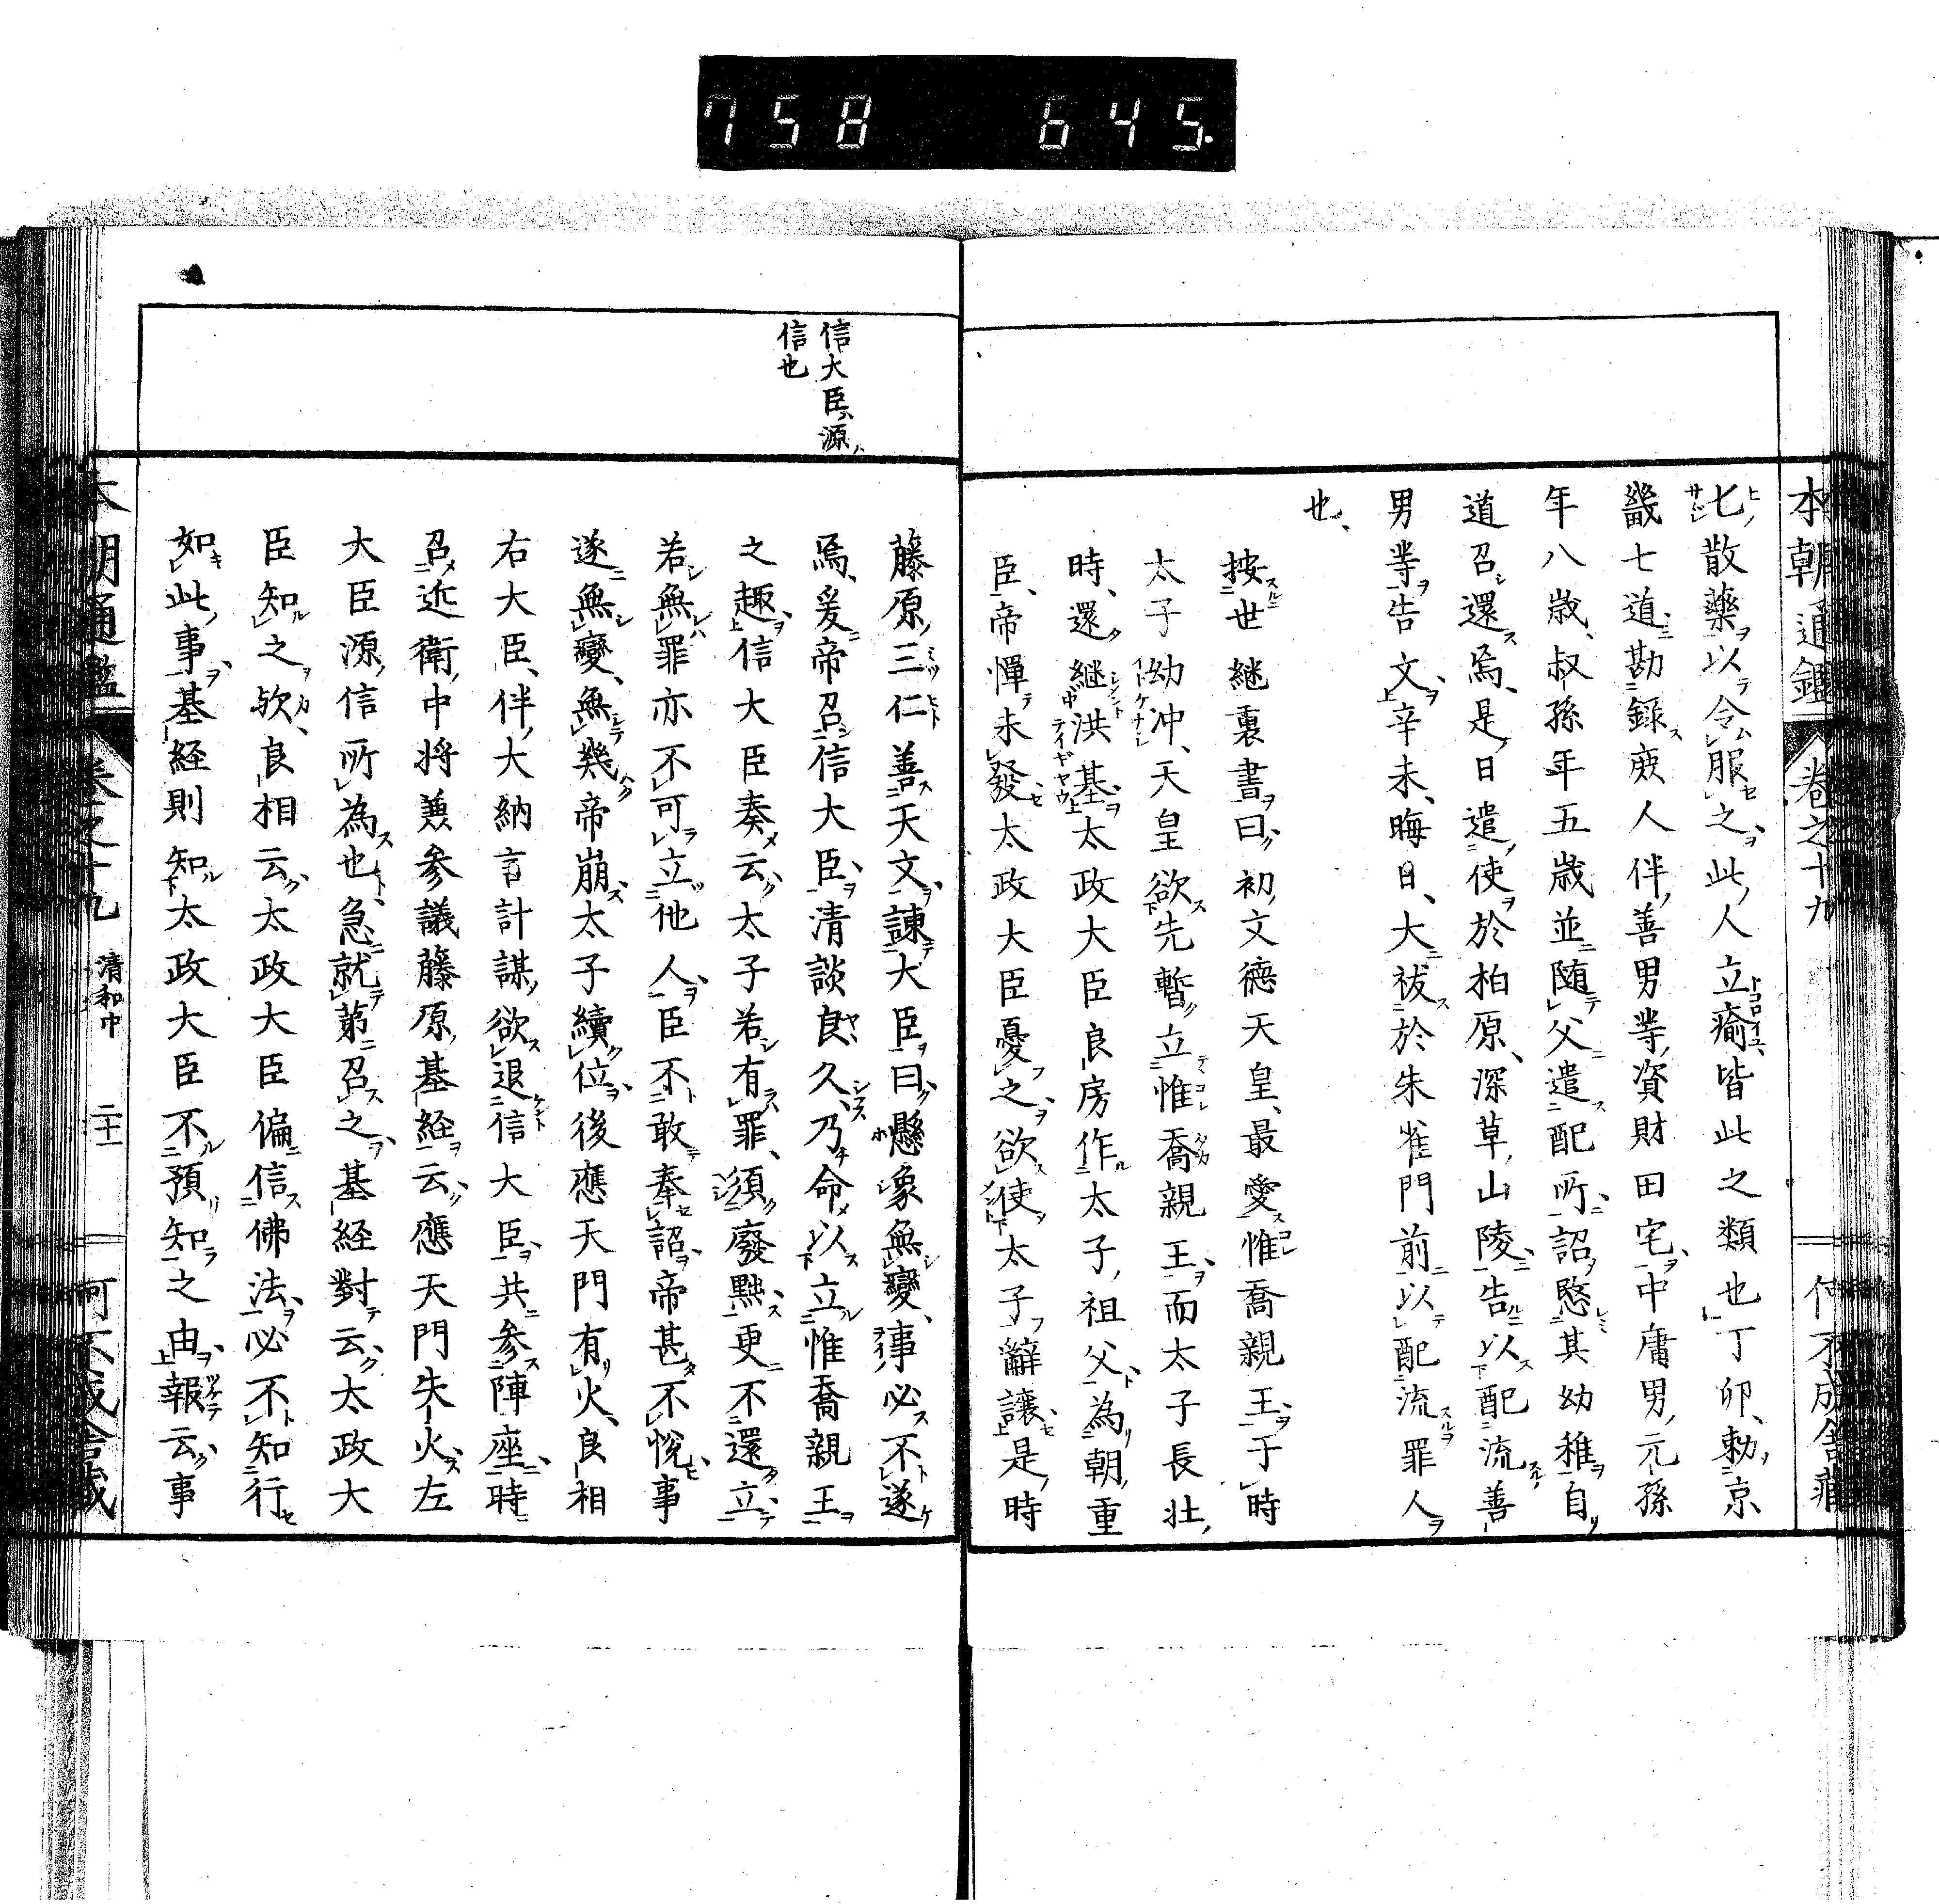 758 645.
本朝通鑑 卷之十九
七散藥以令服之此人立瘉皆此之類也丁卯勅京
畿七道勘録庻人伴善男等資財田宅中庸男元孫
年八歳叔孫年五歳並随父遣配所詔愍其幼稚自
道召還焉是日遣使於柏原深草山陵告以配流善
男等告文辛未晦日大祓於朱雀門前以配流罪人
也
按世継裏書曰初文徳天皇最愛惟喬親王于時
太子幼冲天皇欲先暫立惟喬親王而太子長壮
時還継洪基太政大臣良房作太子祖父為朝重
臣帝憚未發太政大臣憂之欲使太子辭讓是時
信大臣源
信也
藤原三仁善天文諫大臣曰懸象無變事必不遂
焉爰帝召信大臣清談良久乃命以立惟喬親王
之趣信大臣奏云太子若有罪須廢黜更不還立
若無罪亦不可立他人臣不敢奉詔帝甚不悦事
遂無變無幾帝崩太子續位後應天門有火良相
右大臣伴大納言計謀欲退信大臣共参陣座時
召近衛中将兼参議藤原基経云應天門失火左
大臣源信所為也急就第召之基経對云太政大
臣知之欤良相云太政大臣偏信佛法必不知行
如此事基経則知太政大臣不預知之由報云事
本朝通鑑 卷之十九 清和中 二十一